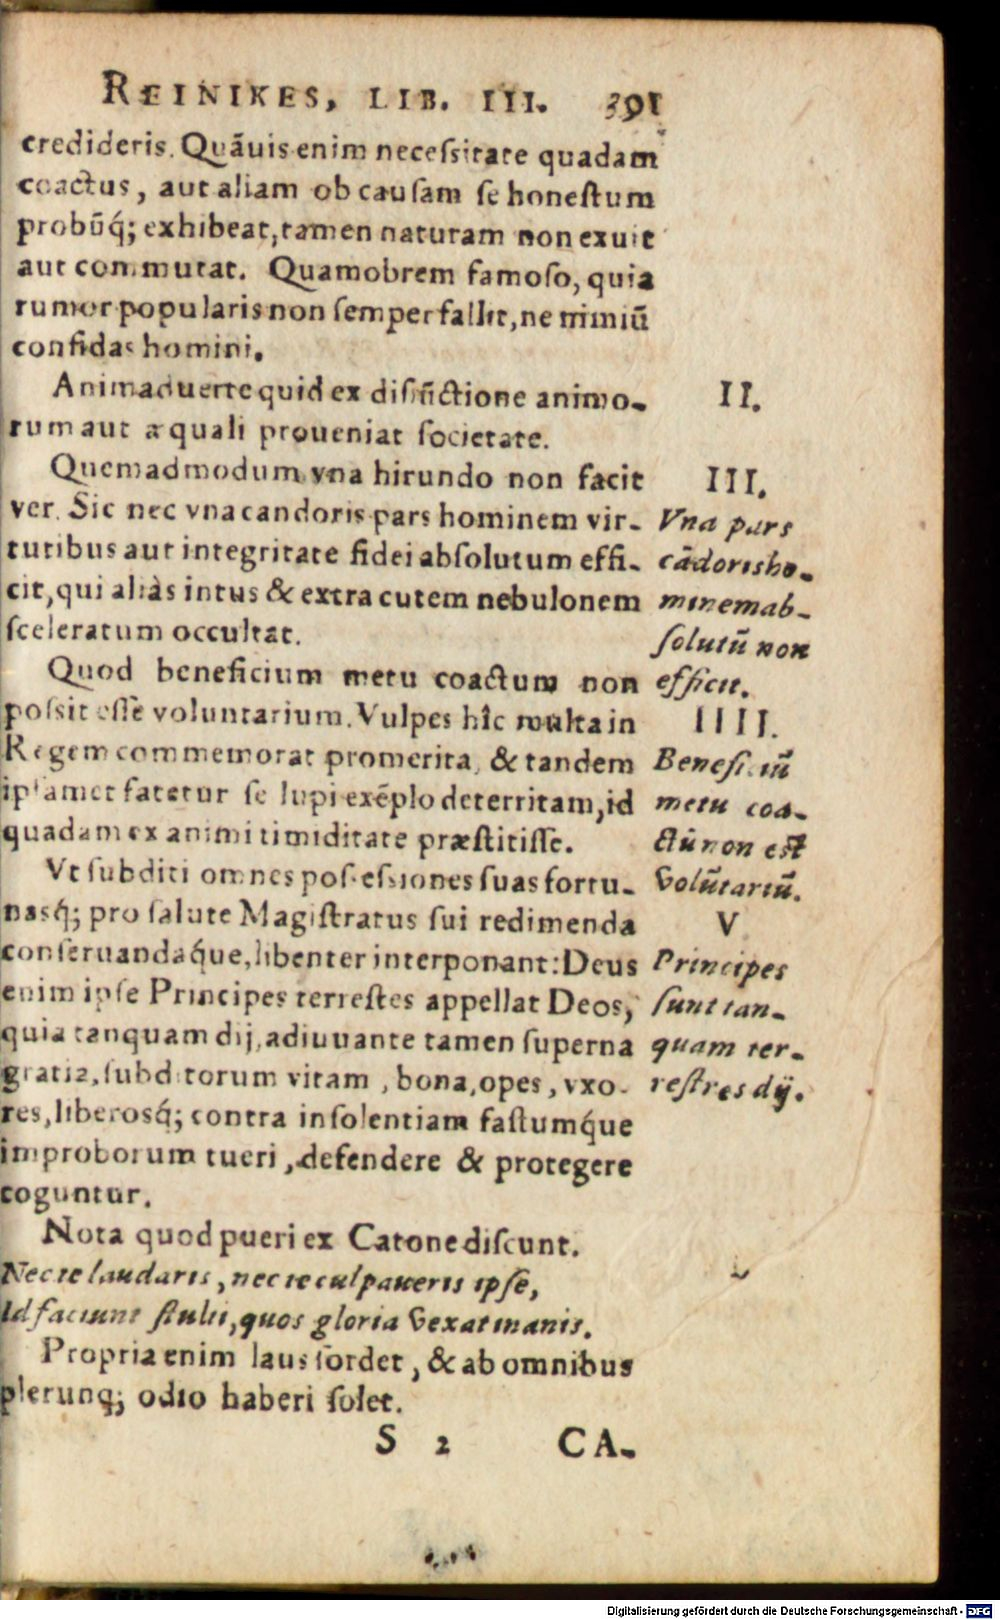 REINIKES, LIB. III. 391
credideris. Quãuis enim necessitate quadam
coactus, aut aliam ob causam se honestum
probũq́; exhibeat, tamen naturam non exuit
aut commutat. Quamobrem famoso, quia
rumor popularis non semper fallit, ne nimiũ
confidas homini.
Animaduerte quid ex disiũctione animo-
rum aut æquali proueniat societate.
II.
Quemadmodum vna hirundo non facit
ver. Sic nec vna candoris pars hominem vir-
tutibus aut integritate fidei absolutum effi-
cit, qui aliàs intus & extra cutem nebulonem
sceleratum occultat.
III.
Vna pars
cãdoris ho-
minem ab-
solutũ non
efficit.
Quod beneficium metu coactum non
possit esse voluntarium. Vulpes hîc multa in
Regem commemorat promerita, & tandem
ipsamet fatetur se lupi exẽplo deterritam, id
quadam ex animi timiditate præstitisse.
IIII.
Beneficiũ
metu coa-
ctũ non est
volũtariũ.
Vt subditi omnes possessiones suas fortu-
nasq́; pro salute Magistratus sui redimenda
conseruandaq́ue, libenter interponant: Deus
enim ipse Principes terrestes appellat Deos,
quia tanquam dij, adiuuante tamen superna
gratia, subditorum vitam, bona, opes, vxo-
res, liberosq́; contra insolentiam fastumq́ue
improborum tueri, defendere & protegere
coguntur.
V
Principes
sunt tan-
quam ter-
restres dij.
Nota quod pueri ex Catone discunt.
Nec te laudaris, nec te culpaueris ipse,
Id faciunt stulti, quos gloria vexat inanis.
Propria enim laus sordet, & ab omnibus
plerunq; odio haberi solet.
S 2 CA-
Digitalisierung gefördert durch die Deutsche Forschungsgemeinschaft - DFG